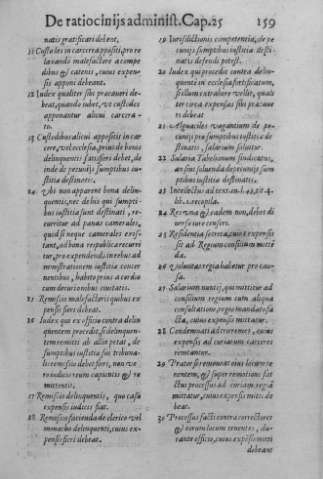 De ratiocinijs administ. Cap. 25 159
natis præstari debent.
11 Custodes in carcere appositi, pro re
laxando malefactore a compe
dibus & catenis, cuius expen-
sis apponi debeant.
12 Iudex qualiter sibi præcaueri de-
beat, quando iubet, ve custodes
apponantur alicui carcera-
to.
13 Custodibus alicui appositis in car
cere, vel ecclesia, prius de bonis
delinquentis satisfieri debet, de
inde de pecunijs sumptibus iu-
stitiæ destinatis.
14 Vbi non apparent bona delin-
quentis, nec de his qui sumpti-
bus iustitiæ sunt destinati, re-
curritur ad pœnas camerales,
quid si neque camerales exs-
tant, ad bona reipublicæ recurre
tur, pro expendendis in rebus ad
ministrationem iustitiæ concer
nentibus, habito prius a cordio
cum decurionibus ciuitatis.
15 Remissio malefactoris quibus ex
pensis fieri debeat.
16 Iudex qui ex officio contra delin
quentem procedit, si delinquen-
tem remitti ab alio petat, de
sumptibus iustitiæ sui tribuna-
lis remissio debet fieri, non ve-
ro iudicis reum capientis &
mittentis.
17 Remissio delinquentis, quo casu
expensis iudicis fiat.
18 Remissio facienda de clerico vel
monacho delinquenti, cuius ex-
pensis fieri debeat.
19 Iurisdictionis competentia, de pe
cunijs sumptibus iustitiæ desti
natis defendi potest.
20 Iudex qui procedit contra delin-
quentē in ecclesia existentē, si
si illum extrahere vellet, qualr
ter circa expensas sibi præcaue
re debeat
21 Alguaciles vagantium de pe-
cunijs pro sumptibus iustitiæ de
stinatis, salarium soluitur.
22 Salaria Tabelionum sindicatus,
an sint soluenda de pecunijs sum
ptibus iustitiæ destinatis.
23 Intellectus ad text. in l. 43. tit. 4.
lib. 2. recopila.
24 Res vna & eadem non, debet di
uerso iure censeri.
25 Residentia secreta, cuius expensis
sit ad Regium consilium mitten
da.
26 voluntas regia habetur pro cau-
sa.
27 Salarium nuncij, qui mittitur ad
consilium regium cum aliqua
consultatione, regio mandato fa
cta, cuius expensis mittatur.
28 Condemnati ad triremes, quius
expensis ad curiarum carceres
remittantur.
29 Prætor si remoueat eius locum te
nentem, & super remotione sit
ctus processus ad curiam regiā
mittatur, cuius expensis mitti de
beat.
30 Processus facti contra correctores
& eorum locum tenentes, du-
rante officio, cuius expensis mitti
debeant